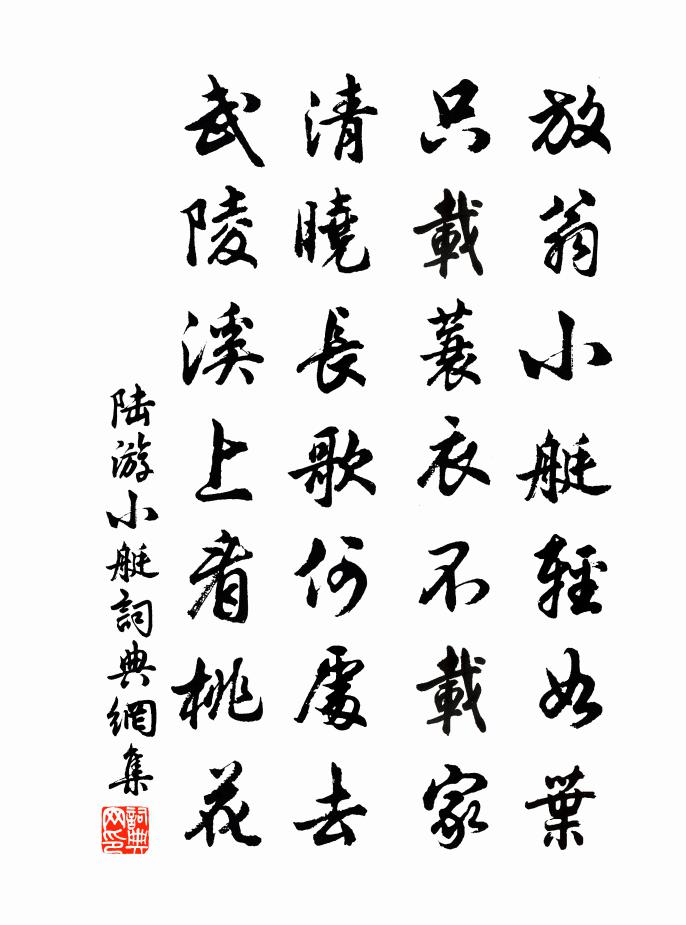 放翁小艇輕如葉
只載蓑衣不載家
清曉長歌何處去
武陵溪上看桃花
陆游小艇詞典網集
詞典
网印